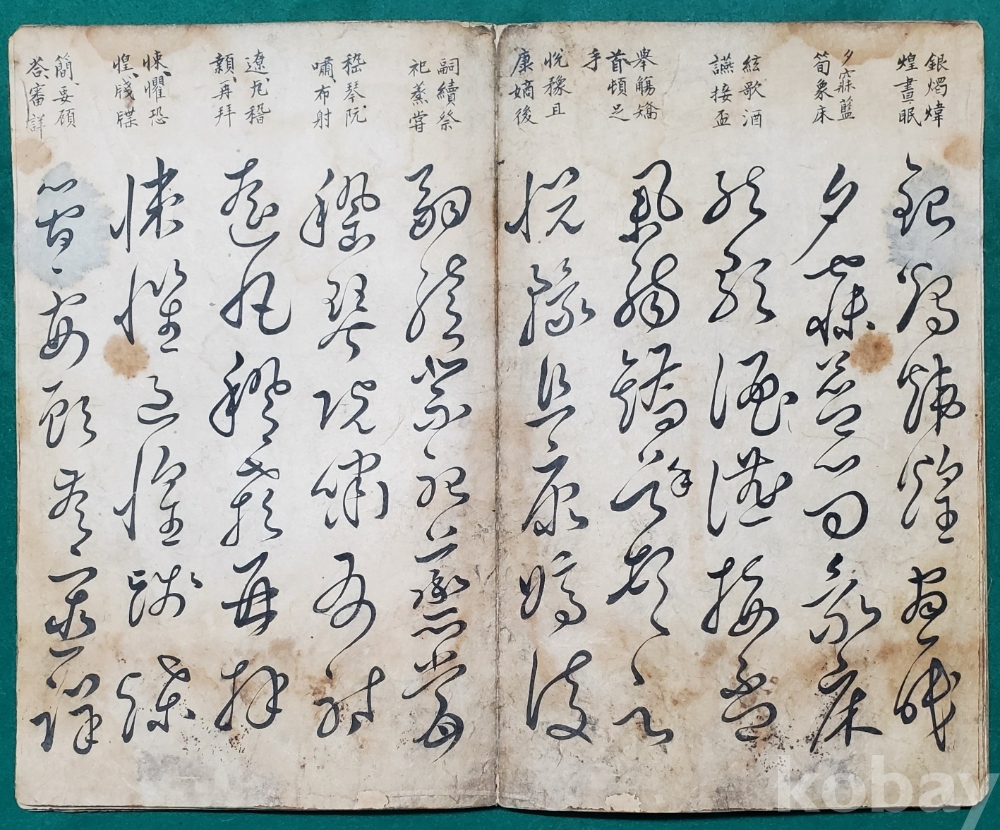 銀燭煒
煌晝眠
夕寐藍
筍象床
絃歌酒
讌接盃
擧觴矯
首頓足
手
悅豫且
康嫡後
嗣續祭
祀蒸嘗
嵇琴阮
嘯布射
遼丸稽
顙再拜
悚懼恐
惶牋牒
簡要顧
答審詳
銀燭煒煌晝眠
夕寐藍筍象床
絃歌酒讌接盃
擧觴矯首手頓足
悅豫且康嫡後
嗣續祭祀蒸嘗
嵇琴阮嘯布射
遼丸稽顙再拜
悚懼恐惶牋牒
簡要顧答審詳
kobay